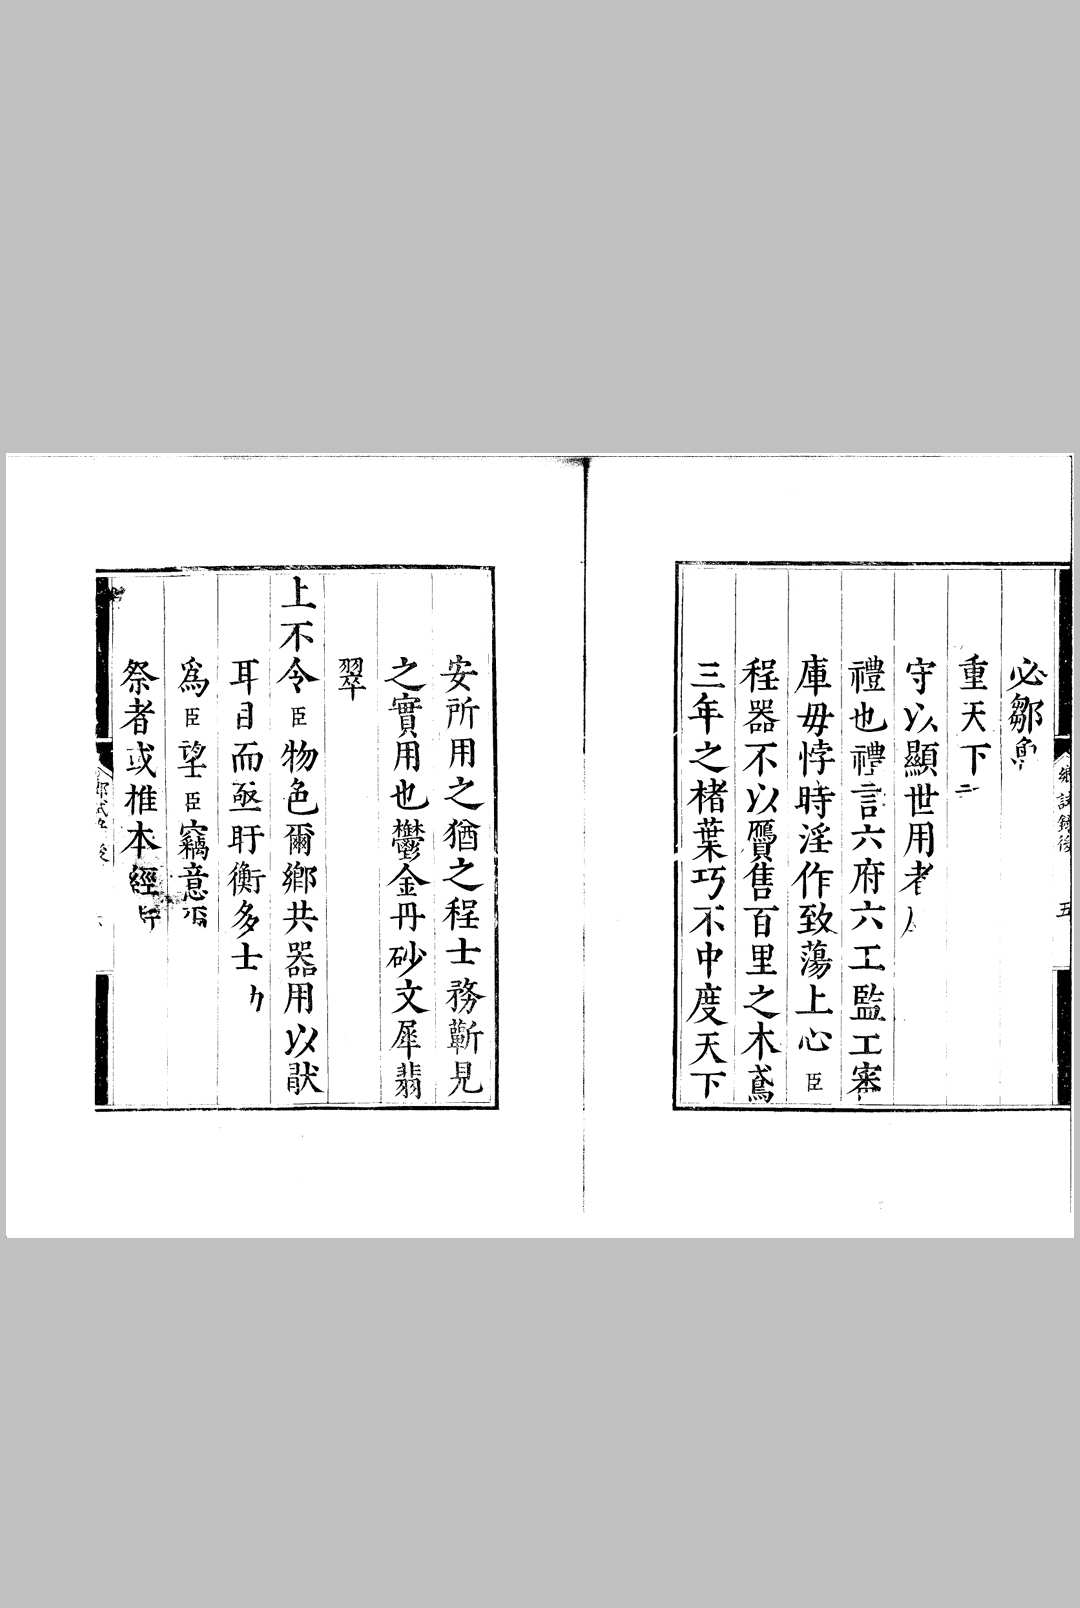 鄉試錄後 五
必鄒魯
重天下
守以顯世用者
禮也禮言六府六工監工審
庫毋悖時淫作致蕩上心臣
程器不以贗售百里之木鳶
三年之楮葉巧不中度天下
安所用之猶之程士務蘄見
之實用也鬱金丹砂文犀翡
翠
上不令臣物色爾鄉共器用以猷
耳目而亟盱衡多士
為臣望臣竊意
祭者或椎本經
鄉試錄後